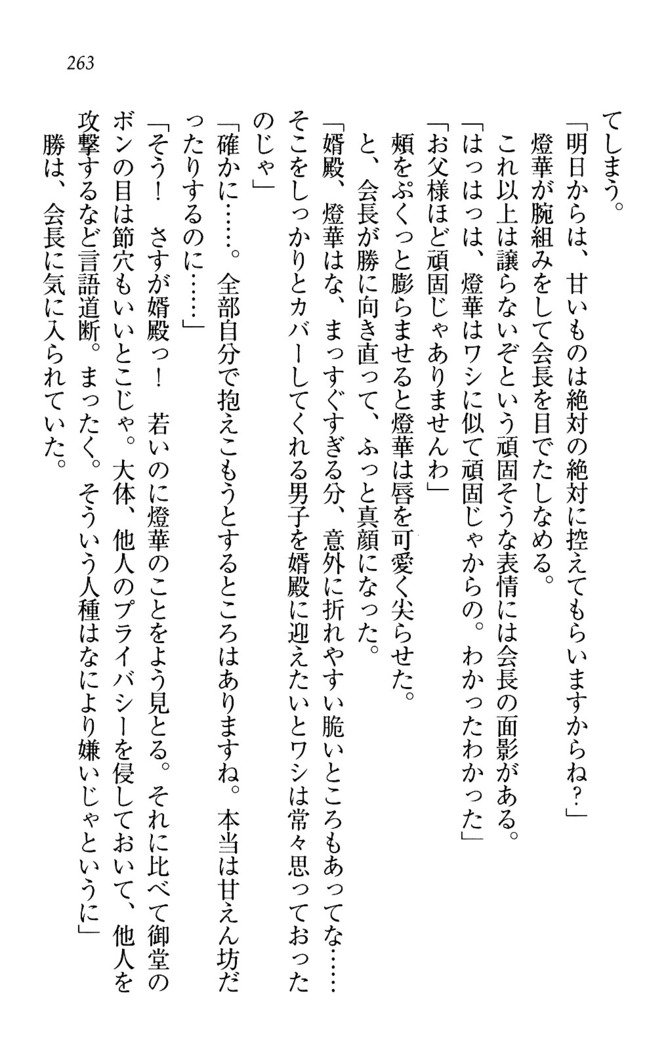 263
てしまう。
「明日からは、甘いものは絶対の絶対に控えてもらいますからね？」
燈華が腕組みをして会長を目でたしなめる。
これ以上は譲らないぞという頑固そうな表情には会長の面影がある。
「はっはっは、燈華はワシに似て頑固じゃからの。わかったわかった」
「お父様ほど頑固じゃありませんわ」
頬をぷくっと膨らませると燈華は唇を可愛く尖らせた。
と、会長が勝に向き直って、ふっと真顔になった。
「婿殿、燈華はな、まっすぐすぎる分、意外に折れやすい脆いところもあってな……
そこをしっかりとカバーしてくれる男子を婿殿に迎えたいとワシは常々思っておった
のじゃ」
「確かに……。全部自分で抱えこもうとするところはありますね。本当は甘えん坊だ
ったりするのに……」
「そう！　さすが婿殿っ！　若いのに燈華のことをよう見とる。それに比べて御堂の
ボンの目は節穴もいいとこじゃ。大体、他人のプライバシーを侵しておいて、他人を
攻撃するなど言語道断。まったく。そういう人種はなにより嫌いじゃというに」
勝は、会長に気に入られていた。